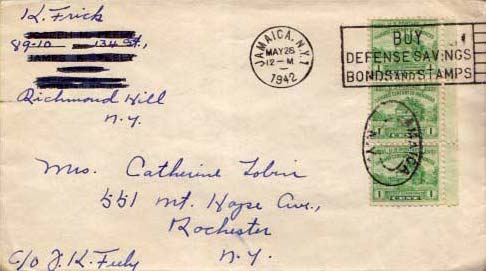 K. Frick
89-10 134 St.,
Richmond Hill
N.Y.
JAMAICA, N.Y.
MAY 26
12-M
1942
BUY
DEFENSE SAVINGS
BONDS AND STAMPS
JAMAICA
N.Y.
1
1
1
1
CENT
Mrs. Catherine Tobin
551 Mt. Hope Ave.,
Rochester
N.Y.
c/o J. K. Feely